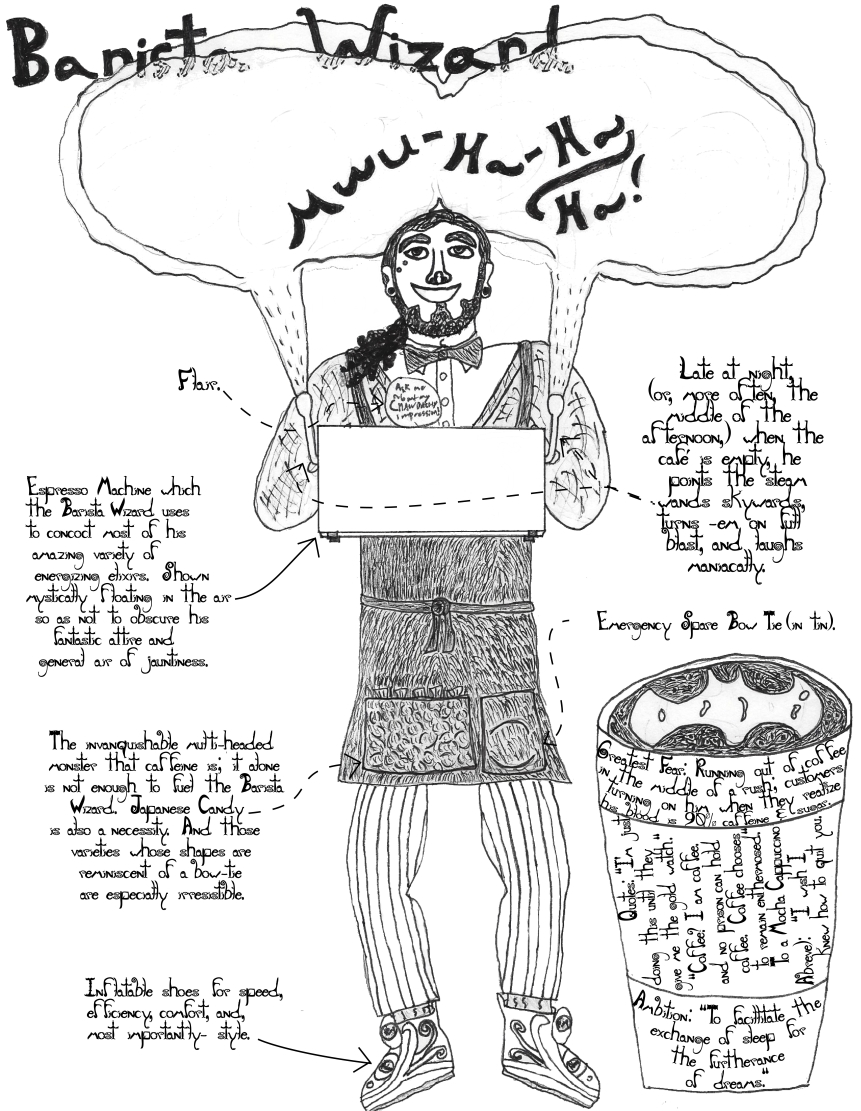 Barista Wizard
Mwu-Ha-Ha
Ha!
Flair.
Ask me
about my
Chewbacca
impression!
Late at night,
(or, more often, the
middle of the
afternoon,) when the
café is empty, he
points the steam
wands skywards,
turns -em on full
blast, and laughs
maniacally.
Espresso Machine which
the Barista Wizard uses
to concoct most of his
amazing variety of
energizing elixirs. Shown
mystically floating in the air
so as not to obscure his
fantastic attire and
general air of jauntiness.
Emergency Spare Bow Tie (in tin).
The invanquishable multi-headed
monster that caffeine is; it alone
is not enough to fuel the Barista
Wizard. Japanese Candy
is also a necessity. And those
varieties whose shapes are
reminiscent of a bow-tie
are especially irresistible.
Inflatable shoes for speed,
efficiency, comfort, and,
most importantly- style.
Greatest Fear: Running out of coffee
in the middle of a rush; customers
turning on him when they realize
his blood is 90% caffeine & sugar.
Quotes: "I'm just
doing this until they
give me the gold watch."
"Coffee? I am coffee.
and no prison can hold
coffee. Coffee chooses
to remain enthermosed."
To a Mocha Cappuccino
"I wish I
knew how to quit you.
Ambition: "To facilitate the
exchange of sleep for
the furtherance
of dreams."